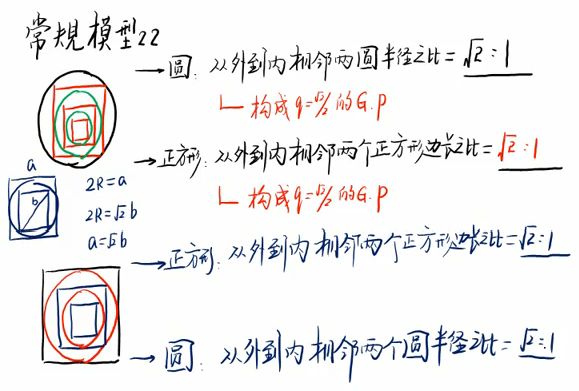 常規模型22
→圆: 从外到内相邻两圆半径之比=√2:1
构成q=√2/2的G.P
→正方形: 从外到内相邻两个正方形边长之比=√2:1
构成q=√2/2的G.P
a
b
2R=a
2R=√2b
a=√2b
→正方形: 从外到内相邻两个正方形边长之比=√2:1
→圆: 从外到内相邻两个圆半径之比=√2:1